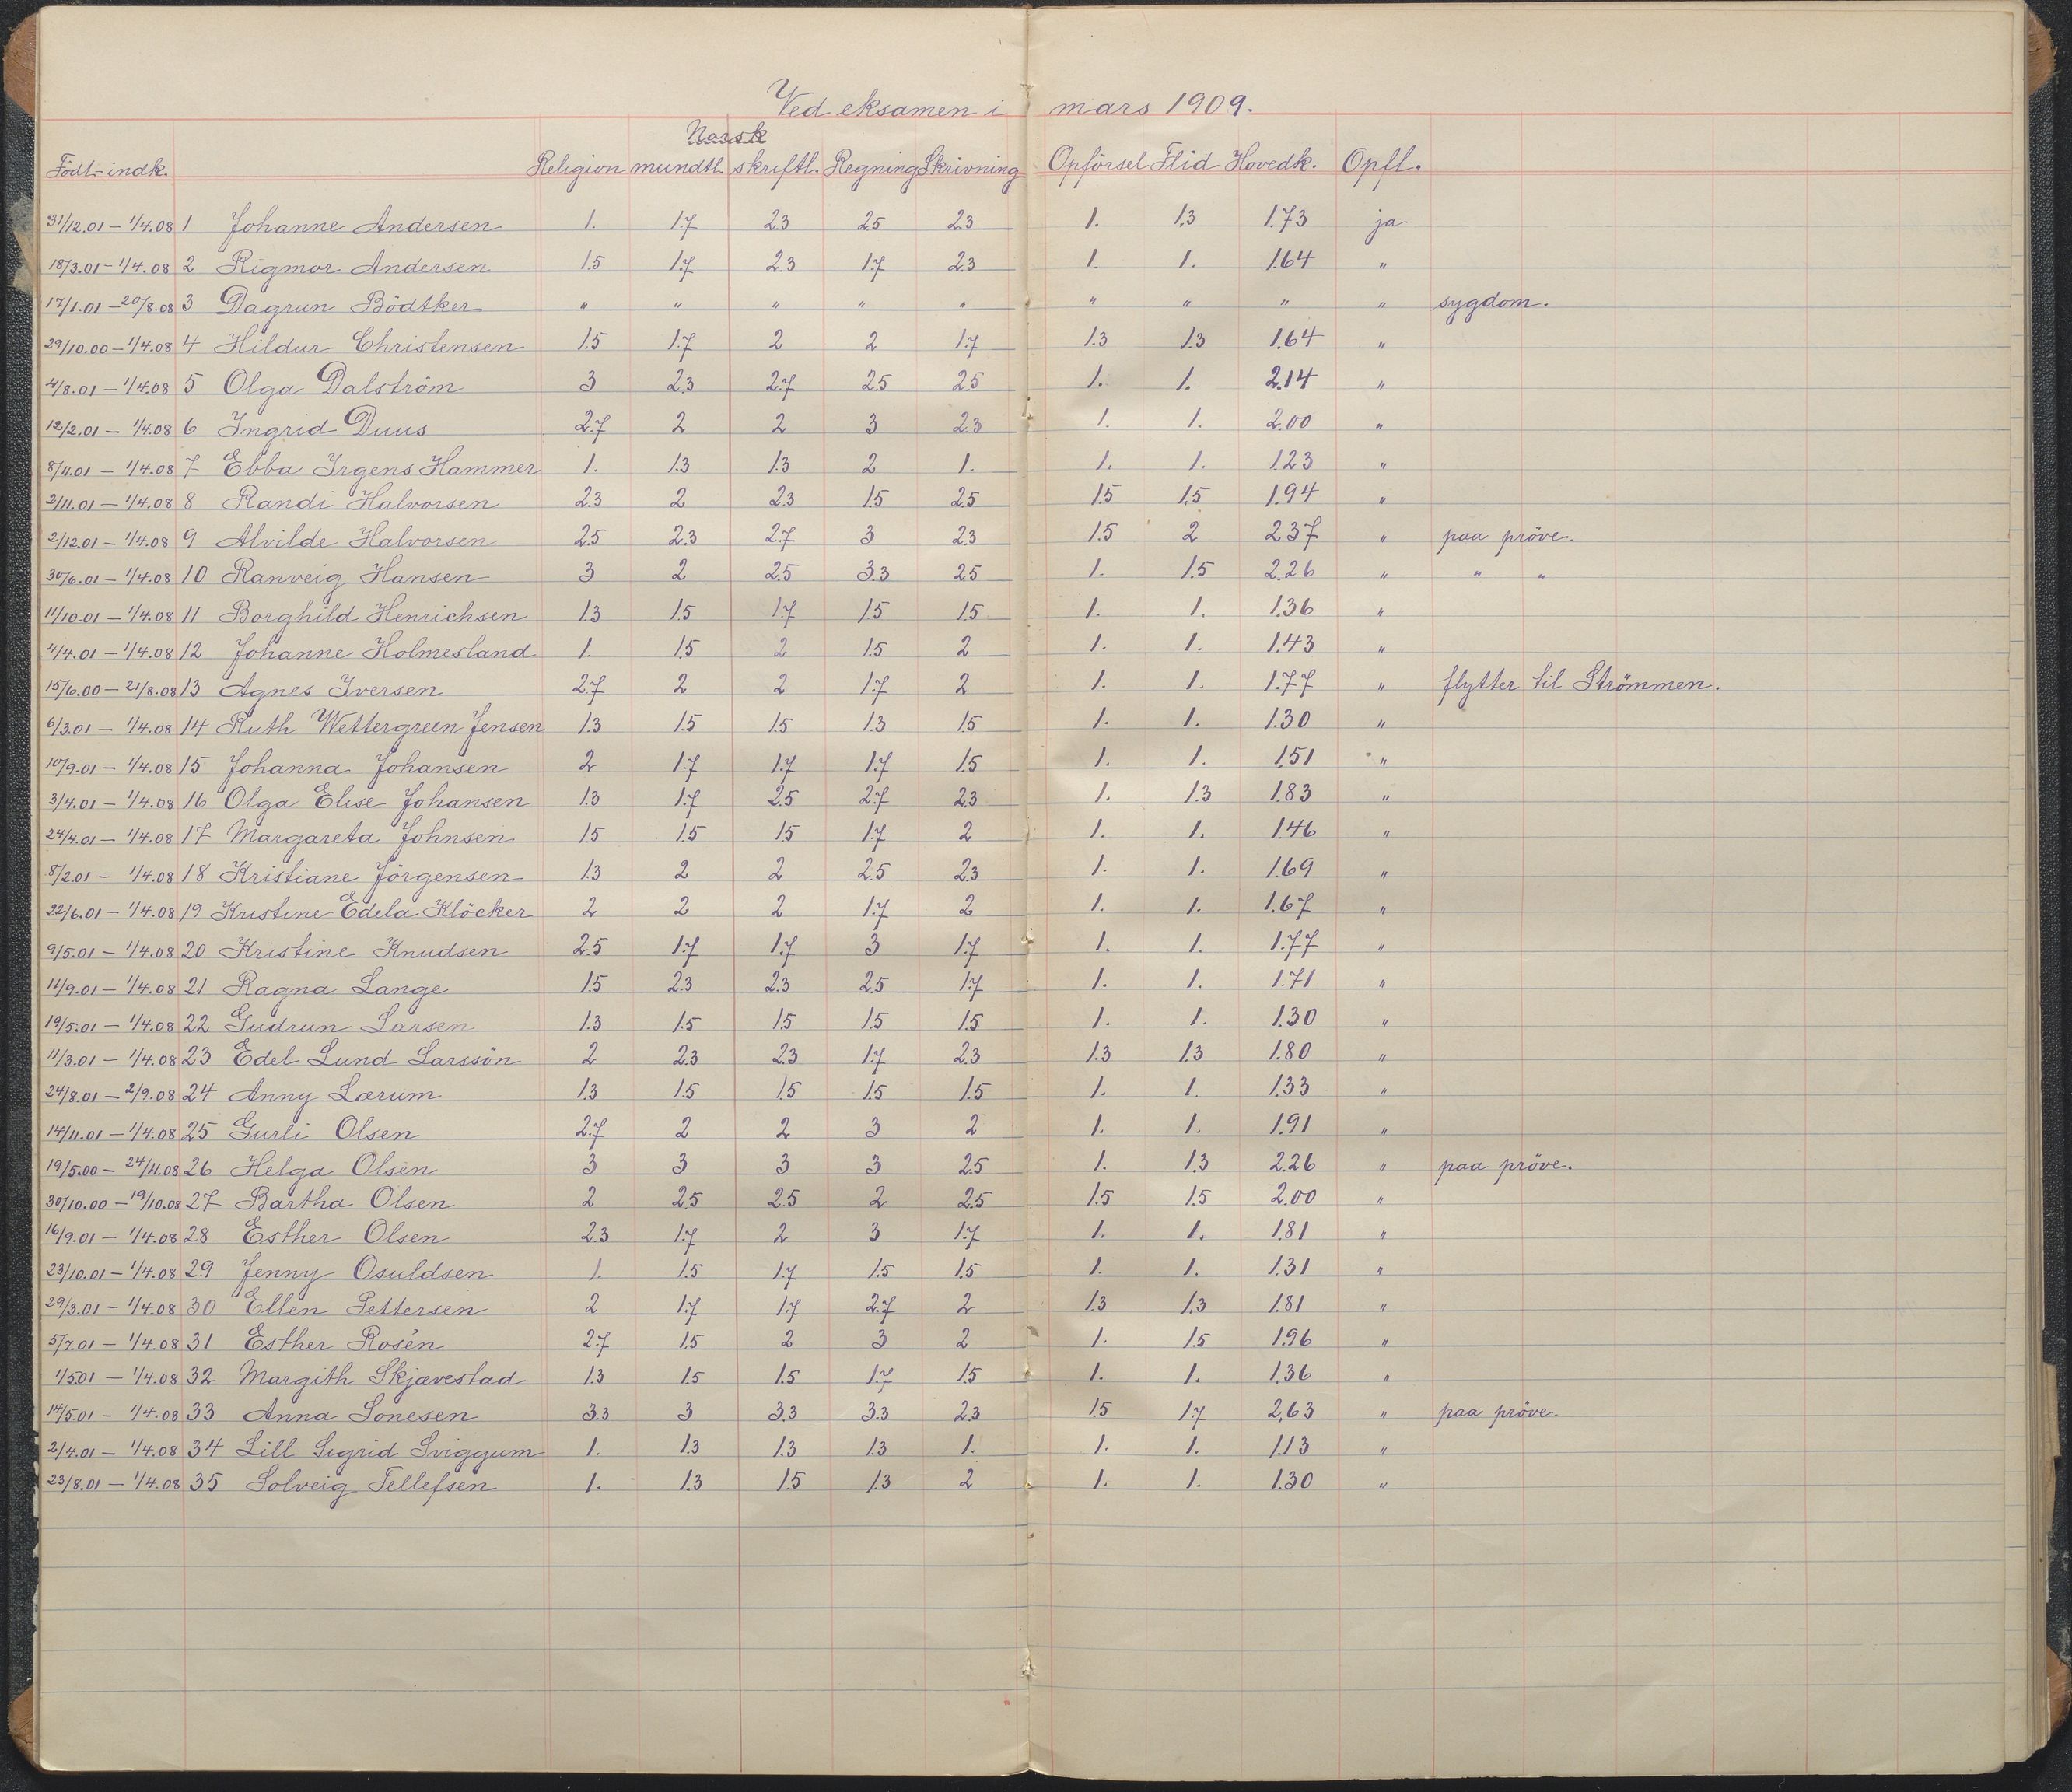 Ved eksamen i mars 1909.
Norsk
Födt-indk. Religion mundtl. skriftl. Regning Skrivning Opförsel Flid Hovedk. Opfl.
31/12.01 – 1/4.08 1 Johanne Andersen 1. 1.7 2.3 2.5 2.3 1. 1.3 1.73 ja
18/3.01 – 1/4.08 2 Rigmor Andersen 1.5 1.7 2.3 1.7 2.3 1. 1. 1.64 "
17/1.01 – 20/8.08 3 Dagrun Bödtker " " " " " " " " " sygdom.
29/10.00 – 1/4.08 4 Hildur Christensen 1.5 1.7 2 2 1.7 1.3 1.3 1.64 "
4/8.01 – 1/4.08 5 Olga Dalström 3 2.3 2.7 2.5 2.5 1. 1. 2.14 "
12/2.01 – 1/4.08 6 Ingrid Duus 2.7 2 2 3 2.3 1. 1. 2.00 "
8/11.01 – 1/4.08 7 Ebba Irgens Hammer 1. 1.3 1.3 2 1. 1. 1. 1.23 "
2/11.01 – 1/4.08 8 Randi Halvorsen 2.3 2 2.3 1.5 2.5 1.5 1.5 1.94 "
2/12.01 – 1/4.08 9 Alvilde Halvorsen 2.5 2.3 2.7 3 2.3 1.5 2 2.37 " paa pröve.
30/6.01 – 1/4.08 10 Ranveig Hansen 3 2 2.5 3.3 2.5 1. 1.5 2.26 " " "
11/10.01 – 1/4.08 11 Borghild Henrichsen 1.3 1.5 1.7 1.5 1.5 1. 1. 1.36 "
4/4.01 – 1/4.08 12 Johanne Holmesland 1. 1.5 2 1.5 2 1. 1. 1.43 "
15/6.00 – 21/8.08 13 Agnes Iversen 2.7 2 2 1.7 2 1. 1. 1.77 " flytter til Strömmen.
6/3.01 – 1/4.08 14 Ruth Wettergreen Jensen 1.3 1.5 1.5 1.3 1.5 1. 1. 1.30 "
10/9.01 – 1/4.08 15 Johanna Johansen 2 1.7 1.7 1.7 1.5 1. 1. 1.51 "
3/4.01 – 1/4.08 16 Olga Elise Johansen 1.3 1.7 2.5 2.7 2.3 1. 1.3 1.83 "
24/4.01 – 1/4.08 17 Margareta Johnsen 1.5 1.5 1.5 1.7 2 1. 1. 1.46 "
8/2.01 – 1/4.08 18 Kristiane Jörgensen 1.3 2 2 2.5 2.3 1. 1. 1.69 "
22/6.01 – 1/4.08 19 Kristine Edela Klöcker 2 2 2 1.7 2 1. 1. 1.67 "
9/5.01 – 1/4.08 20 Kristine Knudsen 2.5 1.7 1.7 3 1.7 1. 1. 1.77 "
11/9.01 – 1/4.08 21 Ragna Lange 1.5 2.3 2.3 2.5 1.7 1. 1. 1.71 "
19/5.01 – 1/4.08 22 Gudrun Larsen 1.3 1.5 1.5 1.5 1.5 1. 1. 1.30 "
11/3.01 – 1/4.08 23 Edel Lund Larssön 2 2.3 2.3 1.7 2.3 1.3 1.3 1.80 "
24/8.01 – 2/9.08 24 Anny Lærum 1.3 1.5 1.5 1.5 1.5 1. 1. 1.33 "
14/11.01 – 1/4.08 25 Gurli Olsen 2.7 2 2 3 2 1. 1. 1.91 "
19/5.00 – 24/11.08 26 Helga Olsen 3 3 3 3 2.5 1. 1.3 2.26 " paa pröve.
30/10.00 – 19/10.08 27 Bartha Olsen 2 2.5 2.5 2 2.5 1.5 1.5 2.00 "
16/9.01 – 1/4.08 28 Esther Olsen 2.3 1.7 2 3 1.7 1. 1. 1.81 "
23/10.01 – 1/4.08 29 Jenny Osuldsen 1. 1.5 1.7 1.5 1.5 1. 1. 1.31 "
29/3.01 – 1/4.08 30 Ellen Pettersen 2 1.7 1.7 2.7 2 1.3 1.3 1.81 "
5/7.01 – 1/4.08 31 Esther Rosén 2.7 1.5 2 3 2 1. 1.5 1.96 "
1/5.01 – 1/4.08 32 Margith Skjævestad 1.3 1.5 1.5 1.7 1.5 1. 1. 1.36 "
14/5.01 – 1/4.08 33 Anna Sonesen 3.3 3 3.3 3.3 2.3 1.5 1.7 2.63 " paa pröve.
2/4.01 – 1/4.08 34 Lill Sigrid Sviggum 1. 1.3 1.3 1.3 1. 1. 1. 1.13 "
23/8.01 – 1/4.08 35 Solveig Tellefsen 1. 1.3 1.5 1.3 2 1. 1. 1.30 "